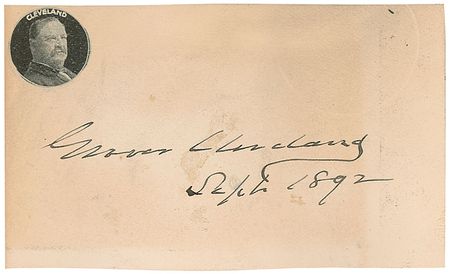 CLEVELAND
Grover Cleveland
Sept 1892